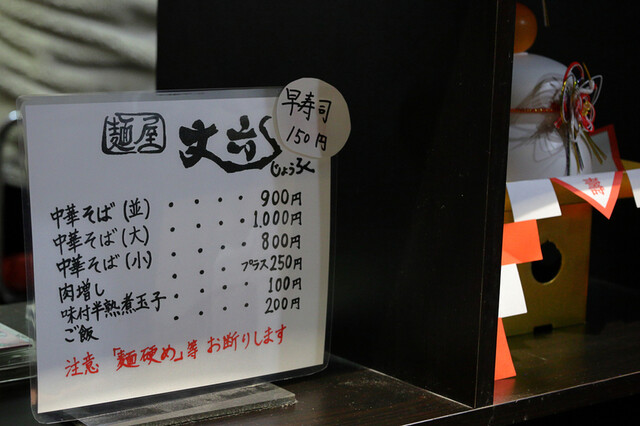 早寿司
150円
麺屋 丈六
じょうろく
中華そば(並) ・・・・ 900円
中華そば(大) ・・・・ 1,000円
中華そば(小) ・・・・ 800円
肉増し ・・・・ プラス250円
味付半熟煮玉子 ・・・ 100円
ご飯 ・・・・ 200円
注意 「麺硬め」等 お断りします
寿